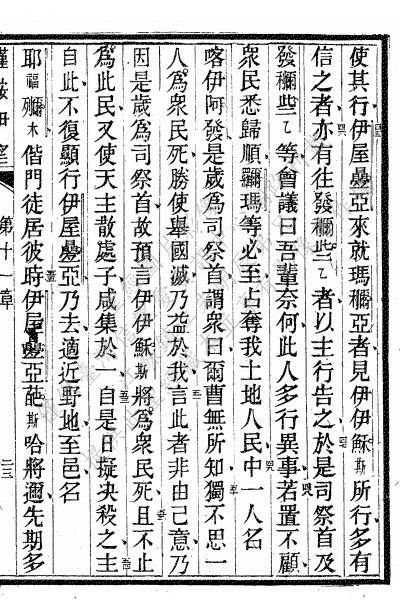 使其行伊屋疊亞來就瑪穪亞者見伊伊穌斯所行多有
信之者亦有往發穪些乙者以主行告之於是司祭首及
發穪些乙等會議曰吾輩奈何此人多行異事若置不顧
衆民悉歸順羅瑪等必至占奪我土地人民中一人名
喀伊阿發是歲爲司祭首謂衆曰爾曹無所知獨不思一
人爲衆民死勝使舉國滅乃益於我言此者非由己意乃
因是歲爲司祭首故預言伊伊穌斯將爲衆民死且不止
爲此民又使天主散處子咸集於一自是日擬決殺之主
自此不復顯行伊屋疊亞乃去適近野地至邑名
耶福列木偕門徒居彼時伊屋疊亞葩斯哈將邇先期多
第十一章